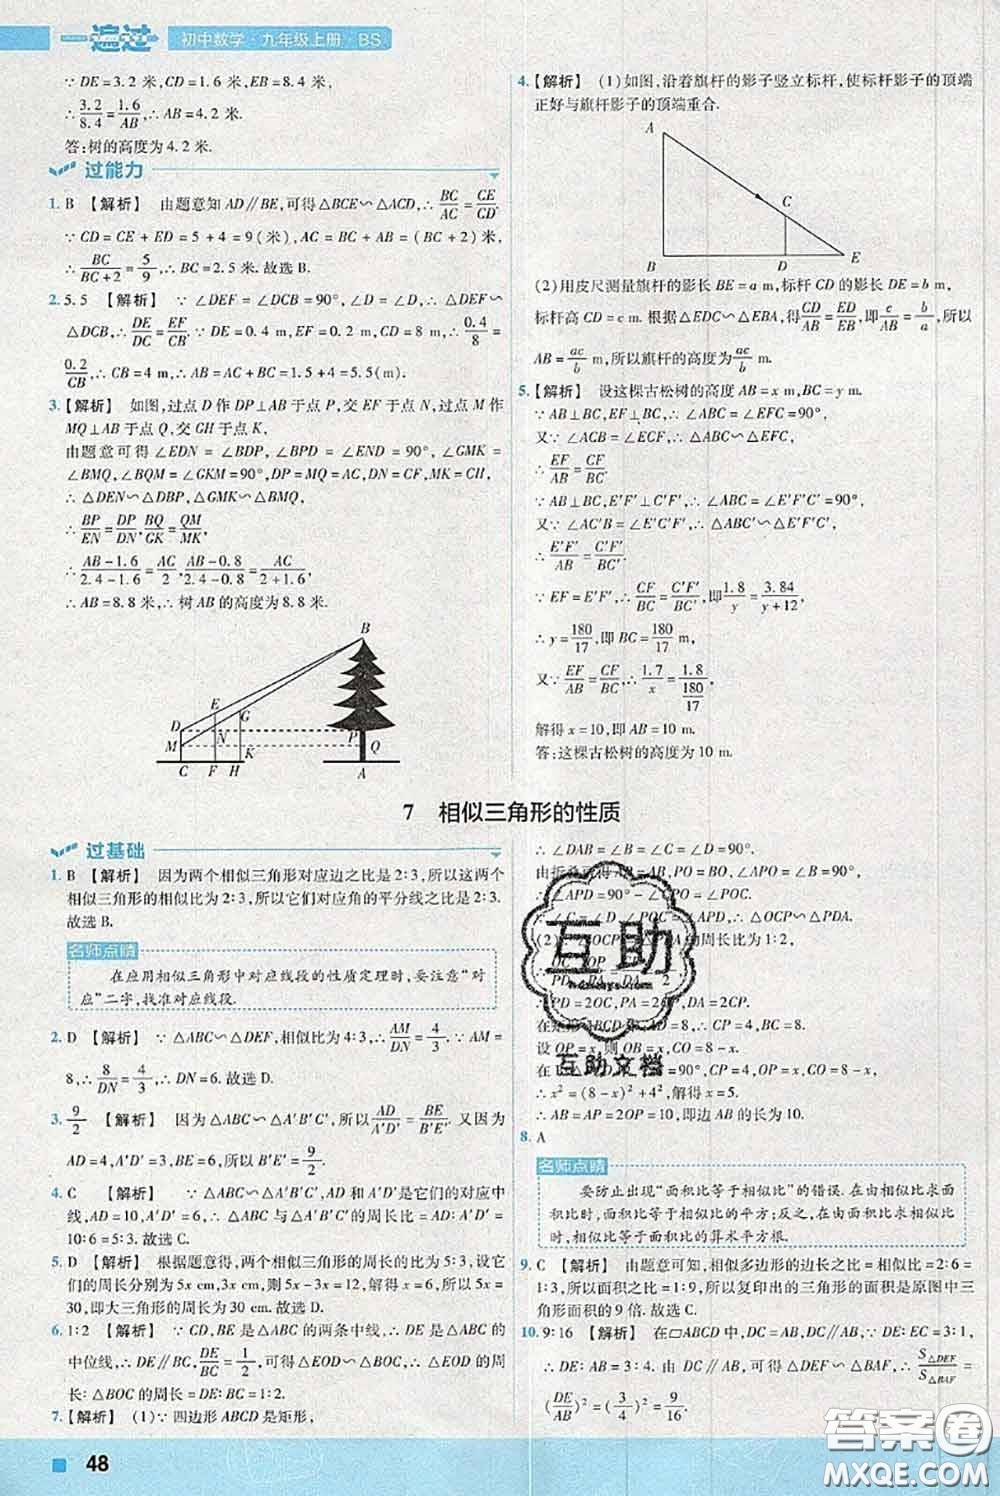 一遍过 初中数学·九年级上册·BS
∵DE=3.2米,CD=1.6米,EB=8.4米,
∴3.2/8.4=1.6/AB,∴AB=4.2米.
答:树的高度为4.2米.
过能力
1. B 【解析】 由题意知AD∥BE,可得△BCE∽△ACD,∴BC/AC=CE/CD.
∵CD=CE+ED=5+4=9(米),AC=BC+AB=(BC+2)米,
∴BC/(BC+2)=5/9,∴BC=2.5米.故选B.
2. 5.5 【解析】 ∵∠DEF=∠DCB=90°,∠D=∠D,∴△DEF∽
△DCB,∴DE/DC=EF/CB.∵DE=0.4 m,EF=0.2 m,CD=8 m,∴0.4/8=
0.2/CB,∴CB=4 m,∴AB=AC+BC=1.5+4=5.5(m).
3.【解析】 如图,过点D作DP⊥AB于点P,交EF于点N,过点M作
MQ⊥AB于点Q,交GH于点K,
由题意可得∠EDN=∠BDP,∠BPD=∠END=90°,∠GMK
=∠BMQ,∠BQM=∠GKM=90°,DP=MQ=AC,DN=CF,MK=CH,
∴△DEN∽△DBP,△GMK∽△BMQ,
∴BP/EN=DP/DN,BQ/GK=QM/MK,
∴(AB-1.6)/(2.4-1.6)=AC/2,(AB-0.8)/(2.4-0.8)=AC/(2+1.6),
∴AB=8.8米,∴树AB的高度为8.8米.
B
E
G
D
N
P
M
K
Q
C F H A
4.【解析】 (1)如图,沿着旗杆的影子竖立标杆,使标杆影子的顶端
正好与旗杆影子的顶端重合.
A
C
B D E
(2)用皮尺测量旗杆的影长BE=a m,标杆CD的影长DE=b m,
标杆高CD=c m.根据△EDC∽△EBA,得CD/AB=ED/EB,即c/AB=b/a,所以
AB=ac/b m,所以旗杆的高度为ac/b m.
5.【解析】 设这棵古松树的高度AB=x m,BC=y m.
∵AB⊥BC,EF⊥BC,∴∠ABC=∠EFC=90°,
又∵∠ACB=∠ECF,∴△ABC∽△EFC,
∴EF/AB=CF/BC.
∵AB⊥BC,E'F'⊥C'F',∴∠ABC=∠E'F'C'=90°,
又∵∠AC'B=∠E'C'F',∴△ABC'∽△E'F'C',
∴E'F'/AB=C'F'/BC'.
∵EF=E'F',∴CF/BC=C'F'/BC',即1.8/y=3.84/(y+12),
∴y=180/17,即BC=180/17 m,
又∵EF/AB=CF/BC,∴1.7/x=1.8/(180/17),
解得x=10,即AB=10 m.
答:这棵古松树的高度为10 m.
7 相似三角形的性质
过基础
1. B 【解析】 因为两个相似三角形对应边之比是2∶3,所以这两个
相似三角形的相似比是2∶3,所以它们对应角的平分线之比是2∶3.
故选B.
名师点睛
在应用相似三角形中对应线段的性质定理时,要注意“对
应”二字,找准对应线段.
2. D 【解析】 ∵△ABC∽△DEF,相似比为4∶3,∴AM/DN=4/3.∵AM=
8,∴8/DN=4/3,∴DN=6.故选D.
3. 9/2 【解析】 因为△ABC∽△A'B'C',所以AD/A'D'=BE/B'E'.又因为
AD=4,A'D'=3,BE=6,所以B'E'=9/2.
4. C 【解析】 ∵△ABC∽△A'B'C',AD和A'D'是它们的对应中
线,AD=10,A'D'=6,∴△ABC与△A'B'C'的周长比=
10∶6=5∶3.故选C.
5. D 【解析】 根据题意得,两个相似三角形的周长的比为5∶3,设它
们的周长分别为5x cm,3x cm,所以5x-3x=12,解得x=6,所以5x=
30,即大三角形的周长为30 cm.故选D.
6. 1∶2 【解析】 ∵CD,BE是△ABC的两条中线,∴DE是△ABC的
中位线,∴DE∥BC,DE/BC=1/2,可得△EOD∽△BOC,∴△EOD的周
长∶△BOC的周长=DE∶BC=1∶2.
7.【解析】 (1)∵四边形ABCD是矩形,
∴∠DAB=∠B=∠C=∠D=90°.
由折叠可得AP=AB,PO=BO,∠APO=∠B=90°,
∴∠APD=90°-∠CPO=∠POC.
∵∠C=∠D,∠APD=∠POC,∴△OCP∽△PDA.
(2)∵△OCP与△PDA的周长比为1∶2,
∴OC/PD=OP/PA=CP/DA=1/2,
∴PD=2OC,PA=2OP,DA=2CP.
在矩形ABCD中,AD=8,∴CP=4,BC=8.
设OP=x,则OB=x,CO=8-x.
∴x²=(8-x)²+4²,解得x=5.
∴AB=AP=2OP=10,即边AB的长为10.
8. A
名师点睛
要防止出现“面积比等于相似比”的错误.在由相似比求面
积比时,面积比等于相似比的平方;反之,在由面积比求相似比
时,相似比等于面积比的算术平方根.
9. C 【解析】 由题意可知,相似多边形的边长之比=相似比=2∶6
=1∶3,所以面积之比=1∶9,所以复印出的三角形的面积是原图中三
角形面积的9倍.故选C.
10. 9∶16 【解析】 在▱ABCD中,DC=AB,DC∥AB,∵DE∶EC=3∶1,
∴DE∶AB=3∶4.由DC∥AB,可得△DEF∽△BAF,∴S△DEF/S△BAF=
(DE/AB)²=(3/4)²=9/16.
互助
互助文档
48
答案圈
MXQE.COM